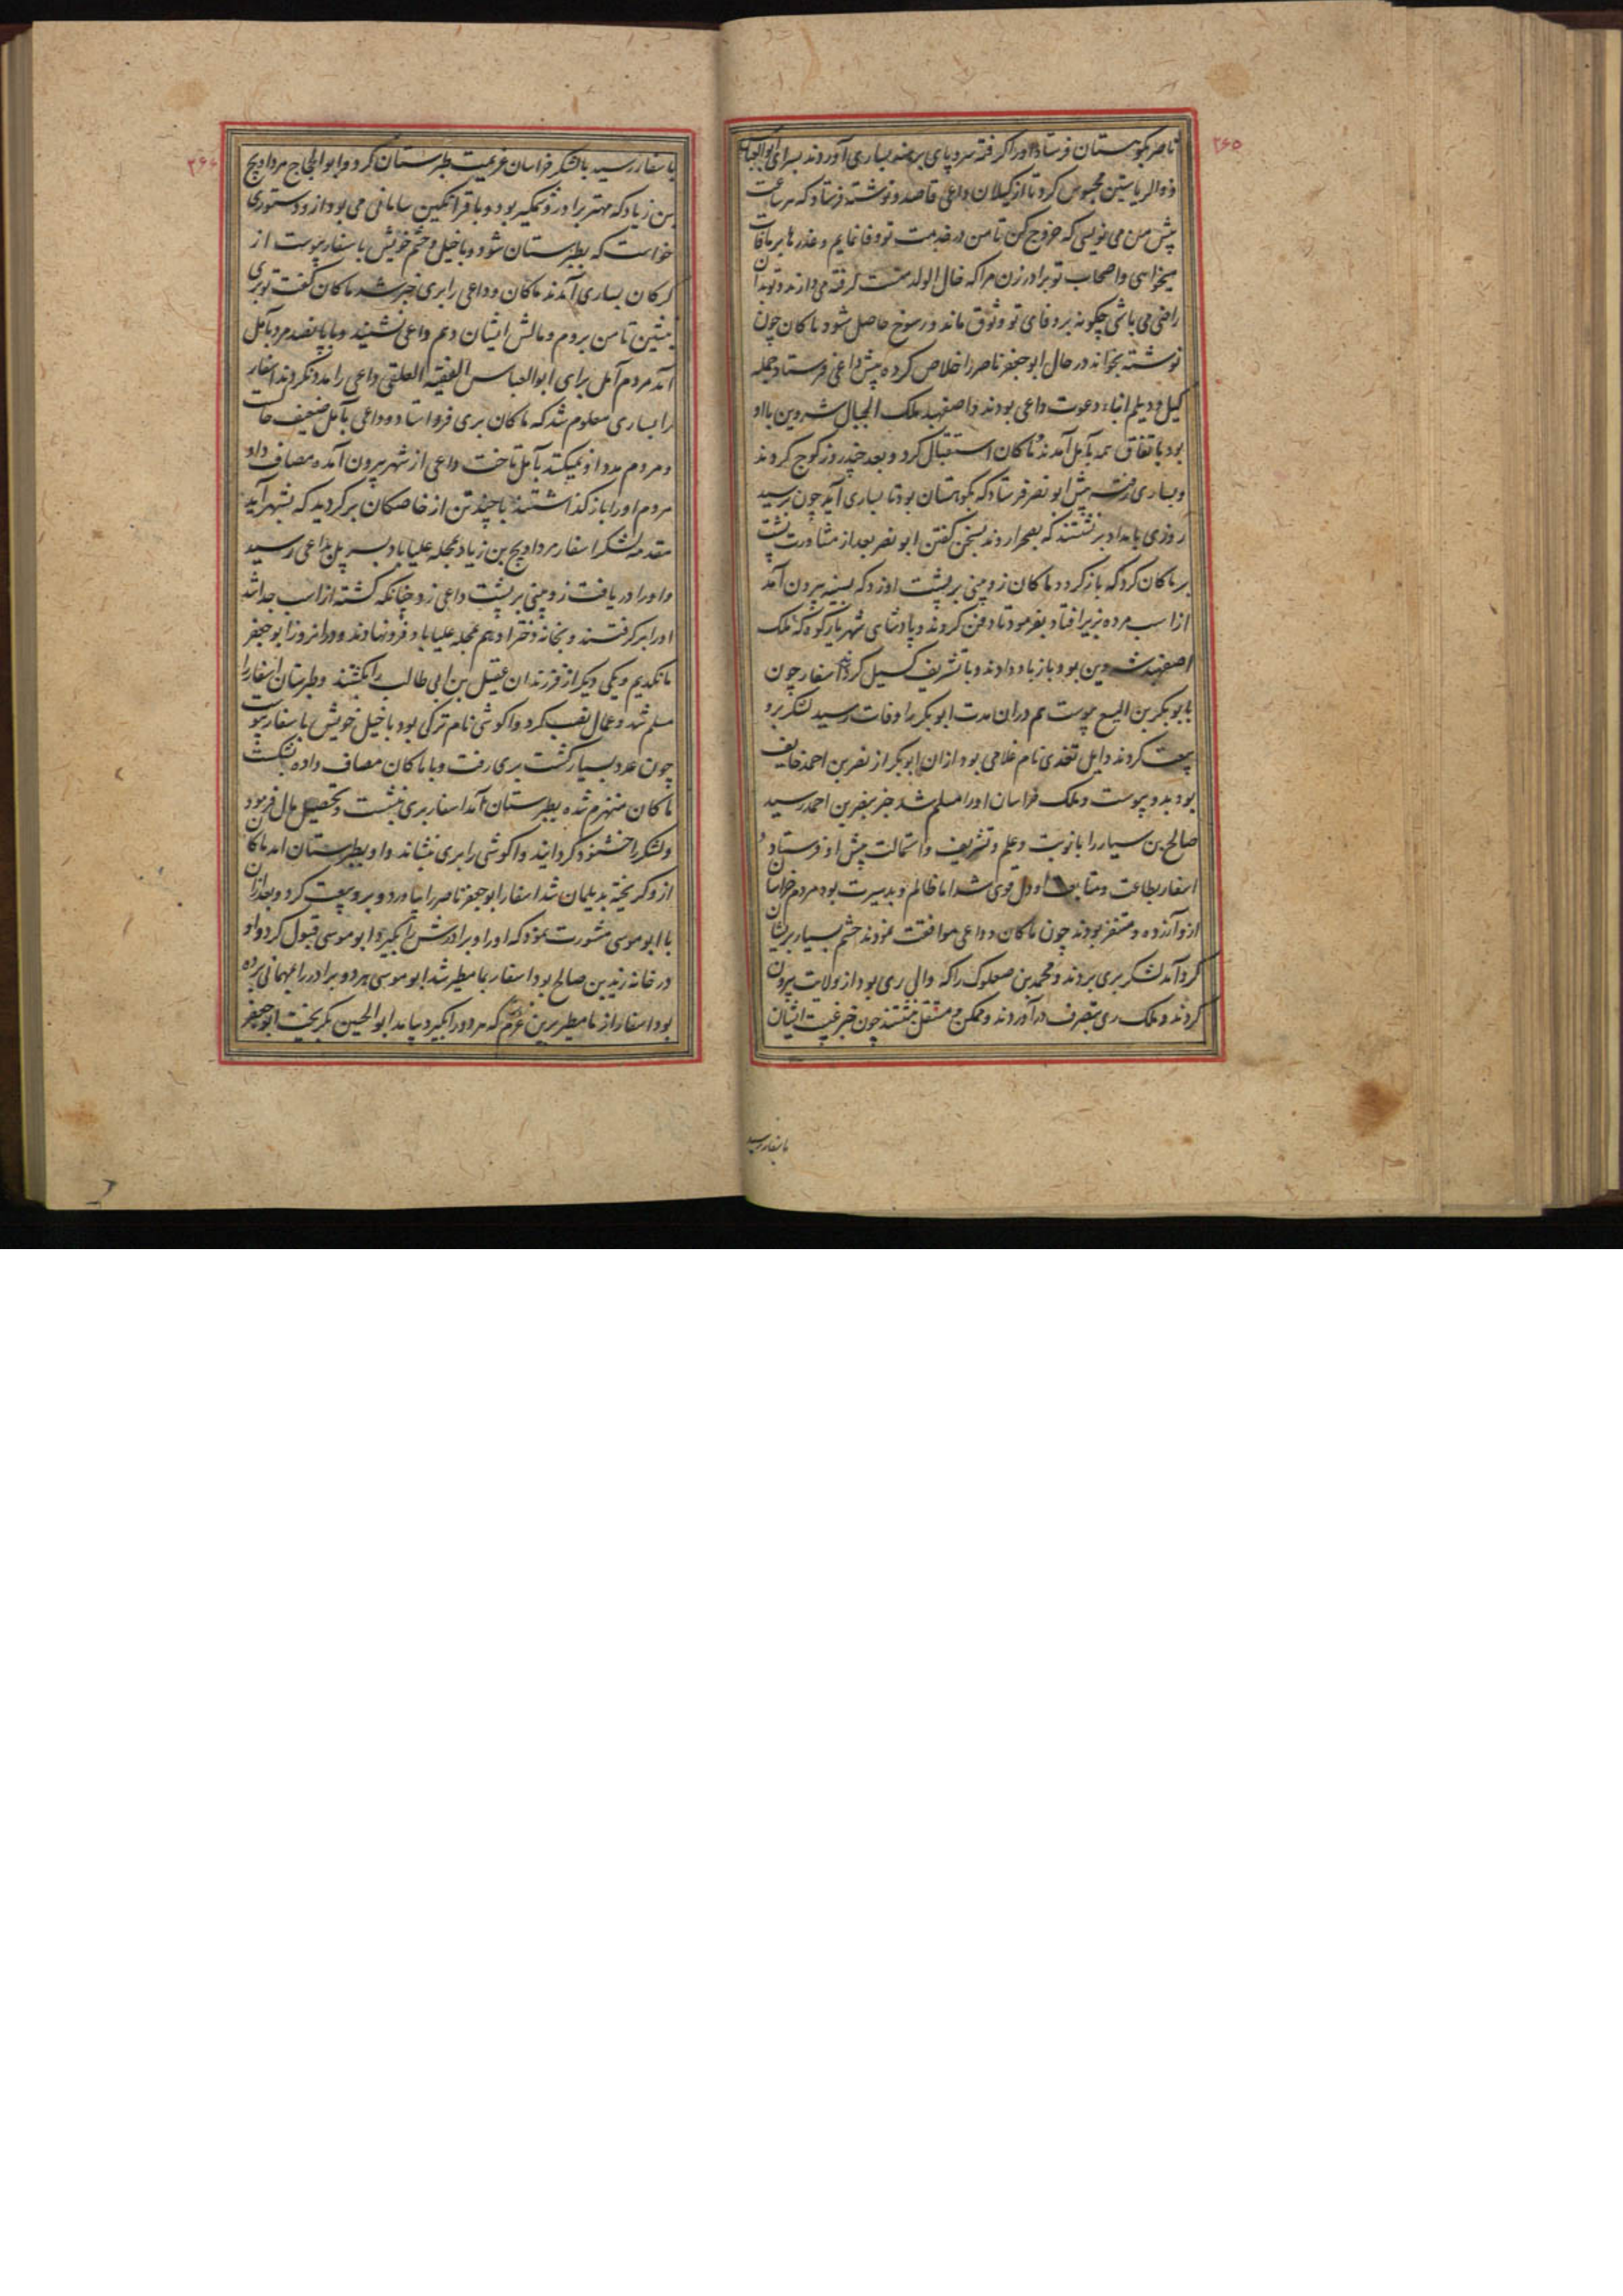 ۲۶۵
ناصر بکوهستان فرستاد اورا گرفته سر و پای برهنه بساری آوردند بسرای ابوالعباس
ذوالریاستین محبوس کرد تا از کیلان داعی قاصد و نوشته فرستاد که هر ساعت
پیش من می نویسی که خروج کن تا من در خدمت تو وفا نمایم و عذرها بر مافات
میخواهی و اصحاب تو برادر زن مرا که خال الولد منست گرفته می دارند و تو بدان
راضی می باشی چگونه بر وفای تو وثوق ماند و رسوخ حاصل شود ماکان چون
نوشته بخواند در حال ابو جعفر ناصر را خلاص کرده پیش داعی فرستاد جمله
کیل و دیلم انباء دعوت داعی بودند و اصفهبد ملک الجبال شروین با او
بود باتفاق همه بآمل آمدند و ماکان استقبال کرد و بعد چند روز کوچ کردند
و بساری رفت پیش ابو نصر فرستاد که بکوهستان بود تا بساری آید چون برسید
روزی بامداد بر نشتند که بصحرا روند بسخن گفتن ابو نصر بعد از مشاورت پشت
بر ماکان کرد که باز گردد ماکان زوپینی بر پشت او زد که بسینه بیرون آمد
از اسب مرده بزیر افتاد بفرمود تا دفن کردند و پادشاهی شهریار کوه که ملک
اصفهبد شروین بود باز باو دادند و با تشریف کسیل کردند اسفار چون
بابو بکر بن الیسع پیوست هم در ان مدت ابو بکر را وفات رسید لشکر برو
بیعت کردند و ایل تغدی نام غلامی بود از ان ابو بکر از نصر بن احمد خایف
بود بدو پیوست و ملک خراسان او را مسلم شد خبر بنصر بن احمد رسید
صالح بن سیار را با نوبت و علم و تشریف و استمالت پیش او فرستاد و
اسفار بطاعت و متابعت او دل قوی شد اما ظالم و بد سیرت بود مردم خراسان
ازو آزرده و متنفر بودند چون ماکان و داعی موافقت نمودند حشم بسیار بریشان
گرد آمد لشکر بری بردند و محمد بن صعلوک را که والی ری بود از ولایت بیرون
کردند و ملک ری بتصرف درآوردند و ممکن و مستقل بنشتند چون خبر غیبت ایشان
باسفار رسید
۲۶۶
باسفار رسید با لشکر خراسان عزیمت طبرستان کرد و ابو الحجاج مرداویج
بن زیاد که مهتر برادر وشمکیر بود و با قراتکین سامانی می بود ازو دستوری
خواست که بطبرستان شود و با خیل و حشم خویش باسفار پیوست از
کرکان بساری آمدند ماکان و داعی را بری خبر شد ماکان گفت تو بری
بنشین تا من بروم و مالش ایشان دهم داعی نشنید و با پانصد مرد بآمل
آمد مردم آمل برای ابو العباس الفقیه العلقی داعی را مدد نکردند اسفار
را بساری معلوم شد که ماکان بری فرو استاد و داعی بآمل ضعیف حالست
و مردم مدد او نمیکنند بآمل تاخت داعی از شهر بیرون آمد و مصاف داد
مردم او را باز گذاشتند با چند تن از خاصکان بر گردید که بشهر آید
مقدمه لشکر اسفار مرداویج بن زیاد بمحله علیاباد بسر پل داعی رسید
و او را دریافت زوپینی بر پشت داعی زد چنانکه کشته از اسب جدا شد
او را بر گرفتند و بخانه دختر او هم بمحله علیاباد فرو نهادند و در انروز ابو جعفر
مانکدیم و یکی دیگر از فرزندان عقیل بن ابی طالب را بکشتند و طبرستان اسفار را
مسلم شد و عمال نصب کرد و اکوشی نام ترکی بود با خیل خویش باسفار پیوست
چون عدد بسیار گشت بری رفت و با ماکان مصاف داده بشکست
ماکان منهزم شده بطبرستان آمد اسفار بری بنشست و تحصیل مال فرمود
و لشکر را خشنود گردانید و اکوشی را بری بنشاند و او بطبرستان امد ماکان
ازو گریخته بدیلمان شد اسفار ابو جعفر ناصر را بیاورد و برو بیعت کرد و بعد ازان
با ابو موسی مشورت نمود که او را و برادرش را بگیرد ابو موسی قبول کرد و او
در خانه زید بن صالح بود اسفار بمامطیر شد ابو موسی هر دو برادر را بمهمانی برده
بود اسفار از مامطیر برین عزم که هر دو را بگیرد بیامد ابو الحسین بگریخت ابو جعفر